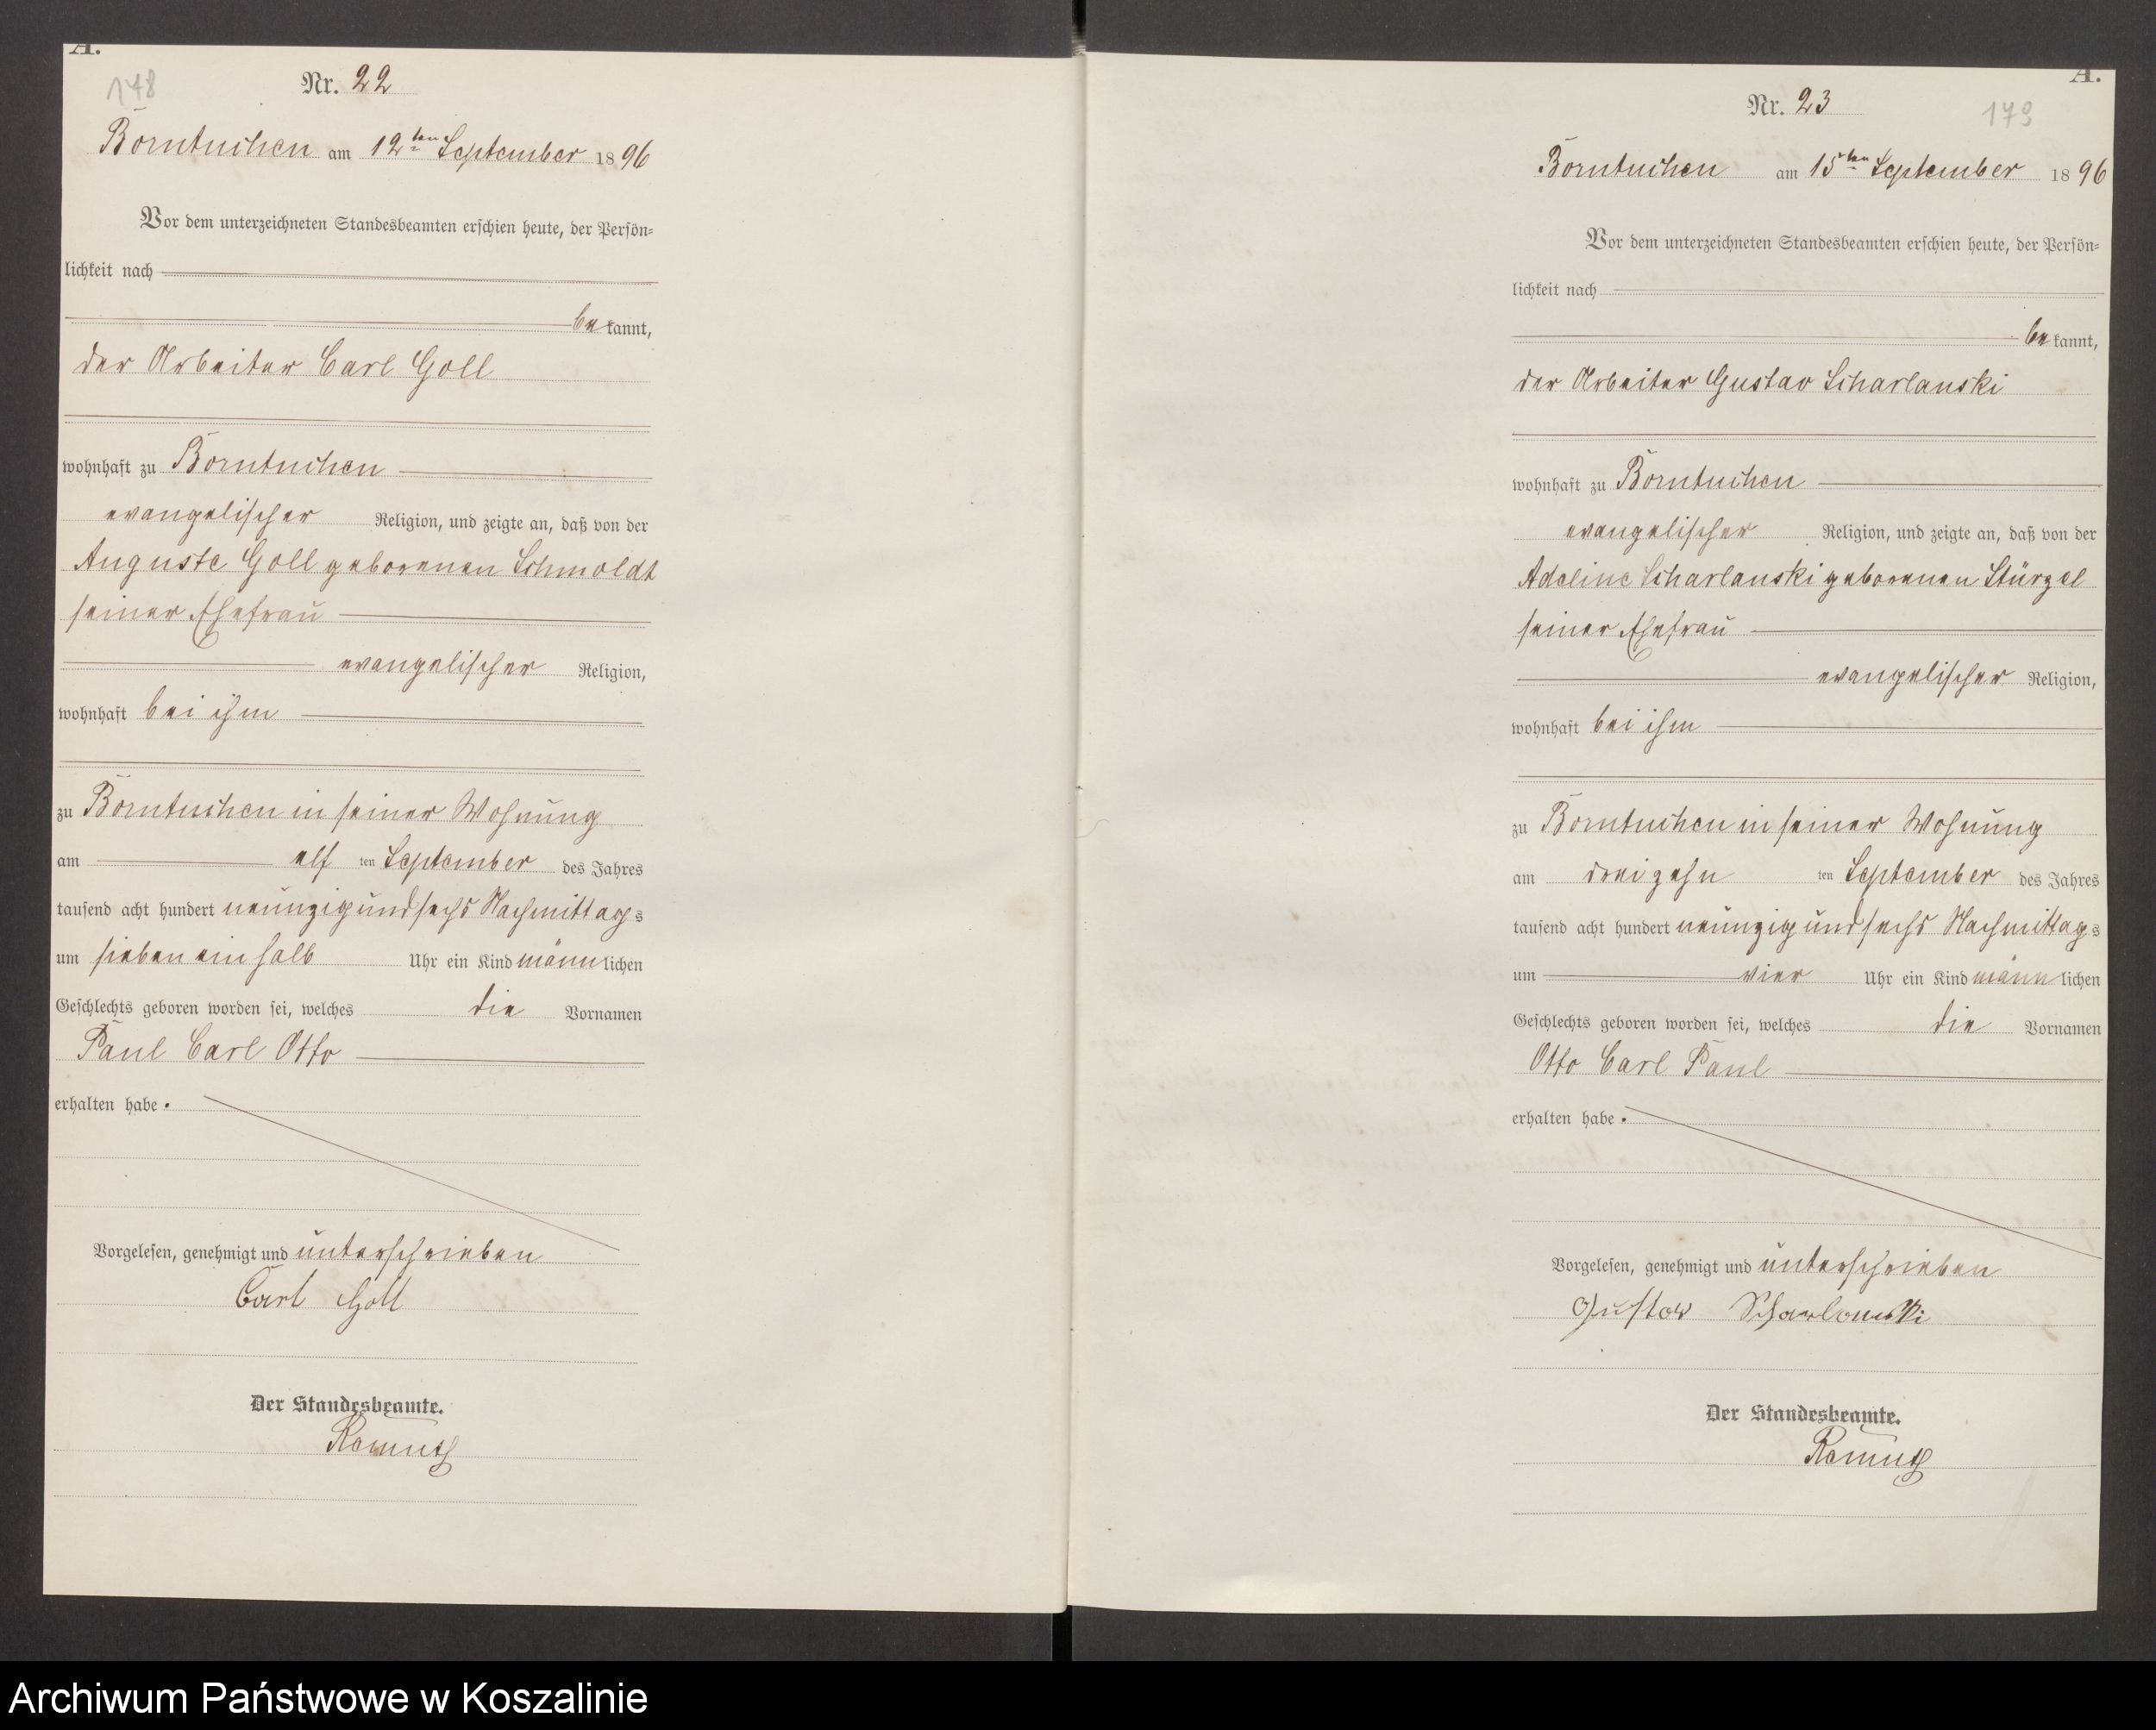 A.
178
Nr. 22
Borntuchen am 12ten September 1896
Vor dem unterzeichneten Standesbeamten erschien heute, der Persön-
lichkeit nach
bekannt,
der Arbeiter Carl Goll
wohnhaft zu Borntuchen
evangelischer Religion, und zeigte an, daß von der
Auguste Goll geborenen Schmoldt
seiner Ehefrau
evangelischer Religion,
wohnhaft bei ihm
zu Borntuchen in seiner Wohnung
am elf ten September des Jahres
tausend acht hundert neunzig und sechs Nachmittags
um sieben ein halb Uhr ein Kind männlichen
Geschlechts geboren worden sei, welches die Vornamen
Paul Carl Otto
erhalten habe.
Vorgelesen, genehmigt und unterschrieben
Carl Goll
Der Standesbeamte.
A.
Nr. 23
179
Borntuchen am 15ten September 1896
Vor dem unterzeichneten Standesbeamten erschien heute, der Persön-
lichkeit nach
bekannt,
der Arbeiter Gustav Scharlanski
wohnhaft zu Borntuchen
evangelischer Religion, und zeigte an, daß von der
Adeline Scharlanski geborenen Stürzel
seiner Ehefrau
evangelischer Religion,
wohnhaft bei ihm
zu Borntuchen in seiner Wohnung
am dreizehn ten September des Jahres
tausend acht hundert neunzig und sechs Nachmittags
um vier Uhr ein Kind männlichen
Geschlechts geboren worden sei, welches die Vornamen
Otto Carl Paul
erhalten habe.
Vorgelesen, genehmigt und unterschrieben
Gustav Scharlanski
Der Standesbeamte.
Archiwum Państwowe w Koszalinie